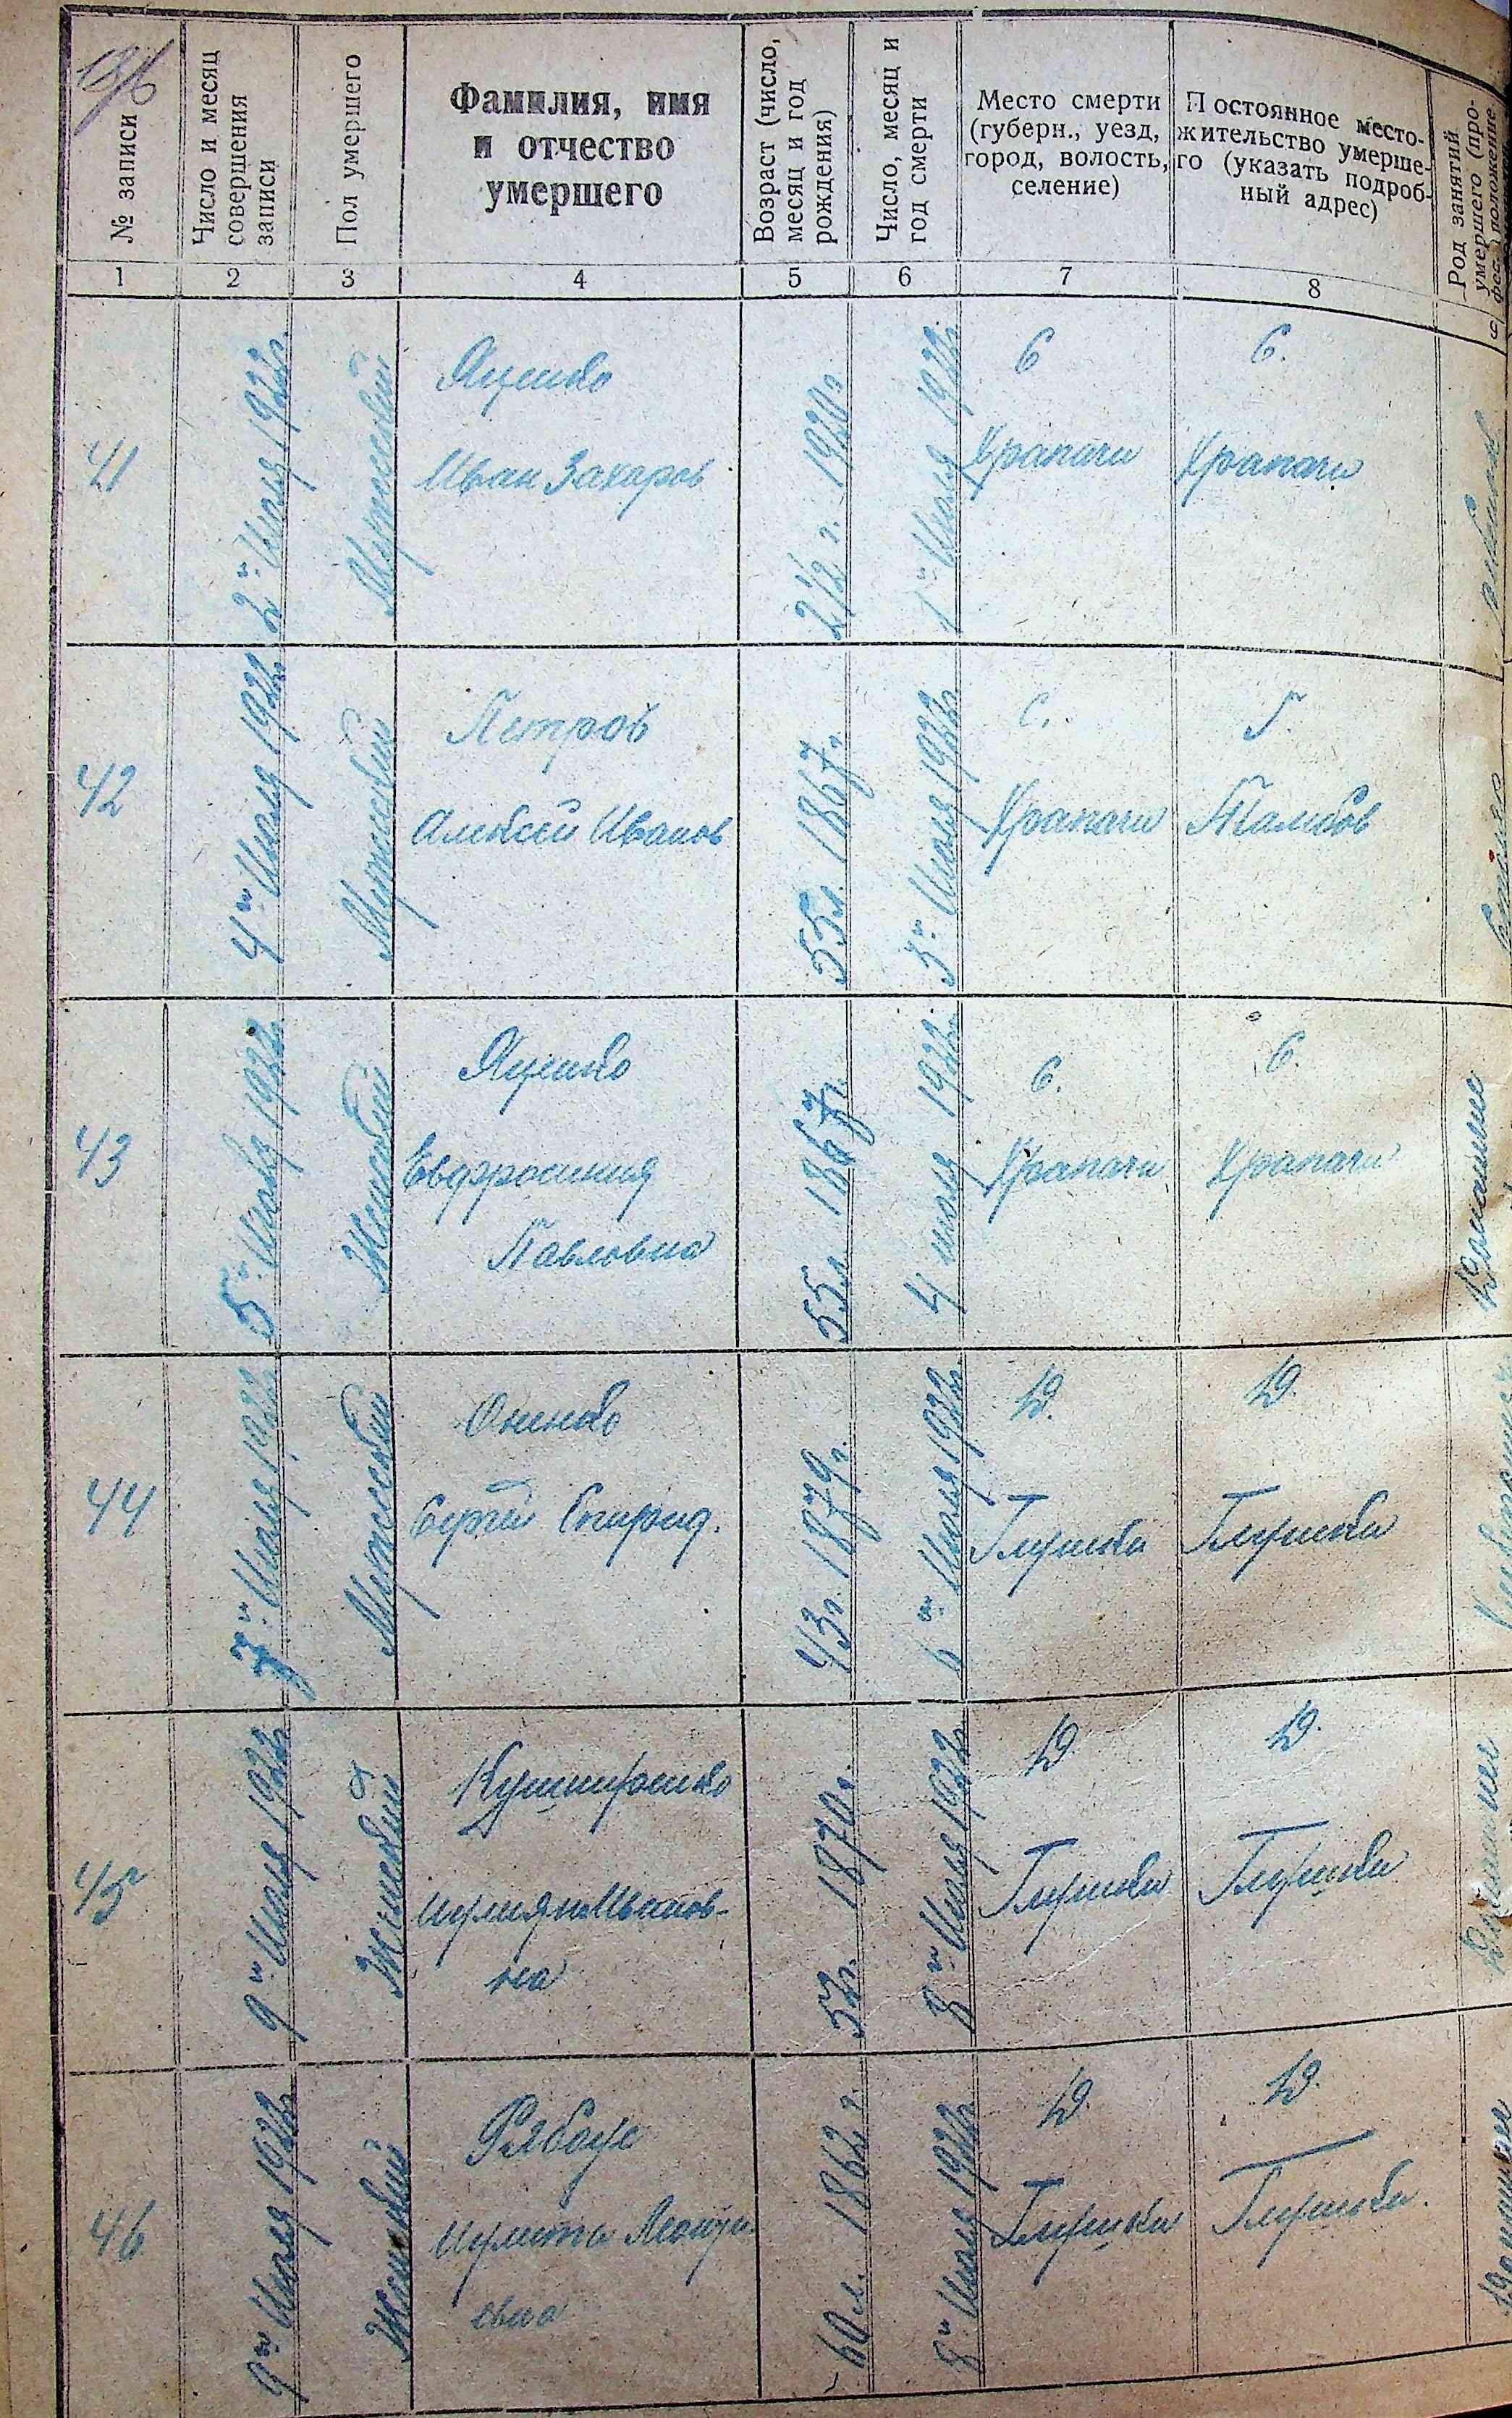 136
№ записи
Число и месяц
совершения
записи
Пол умершего
Фамилия, имя
и отчество
умершего
Возраст (число,
месяц и год
рождения)
Число, месяц и
год смерти
Место смерти
(губерн., уезд,
город, волость,
селение)
Постоянное место-
жительство умерше-
го (указать подроб-
ный адрес)
Род занятий
умершего (про-
фес.) положение
1 2 3 4 5 6 7 8
41
2го Июля 1922г.
Мужской
Яценко
Иван Захаров
2 1/2 г. 1920г.
1го Июля 1922г.
С
Храпачи
С.
Храпачи
42
4го Июля 1922г.
Мужской
Петров
Алексей Иванов
55л. 1867г.
3го Июля 1922г.
С.
Храпачи
Г.
Тамбов
43
5го Июля 1922г.
Женский
Яценко
Евфросиния
Павловна
55л. 1867г.
4 июля 1922г.
С.
Храпачи
С.
Храпачи
Домашние
44
7го Июля 1922г.
Мужской
Сергей Спирид.
43г. 1879г.
6го Июля 1922г.
Д.
Глушки
Д.
Глушки
45
9го Июля 1922г.
Женский
Кушниренко
Иулияния Иванов-
на
52г. 1870г.
8го Июля 1922г.
Д.
Глушки
Д.
Глушки
46
9го Июля 1922г.
Женский
Рябоус
Иулита
евна
60л. 1862г.
8го Июля 1922г.
Д.
Глушки
Д.
Глушки.